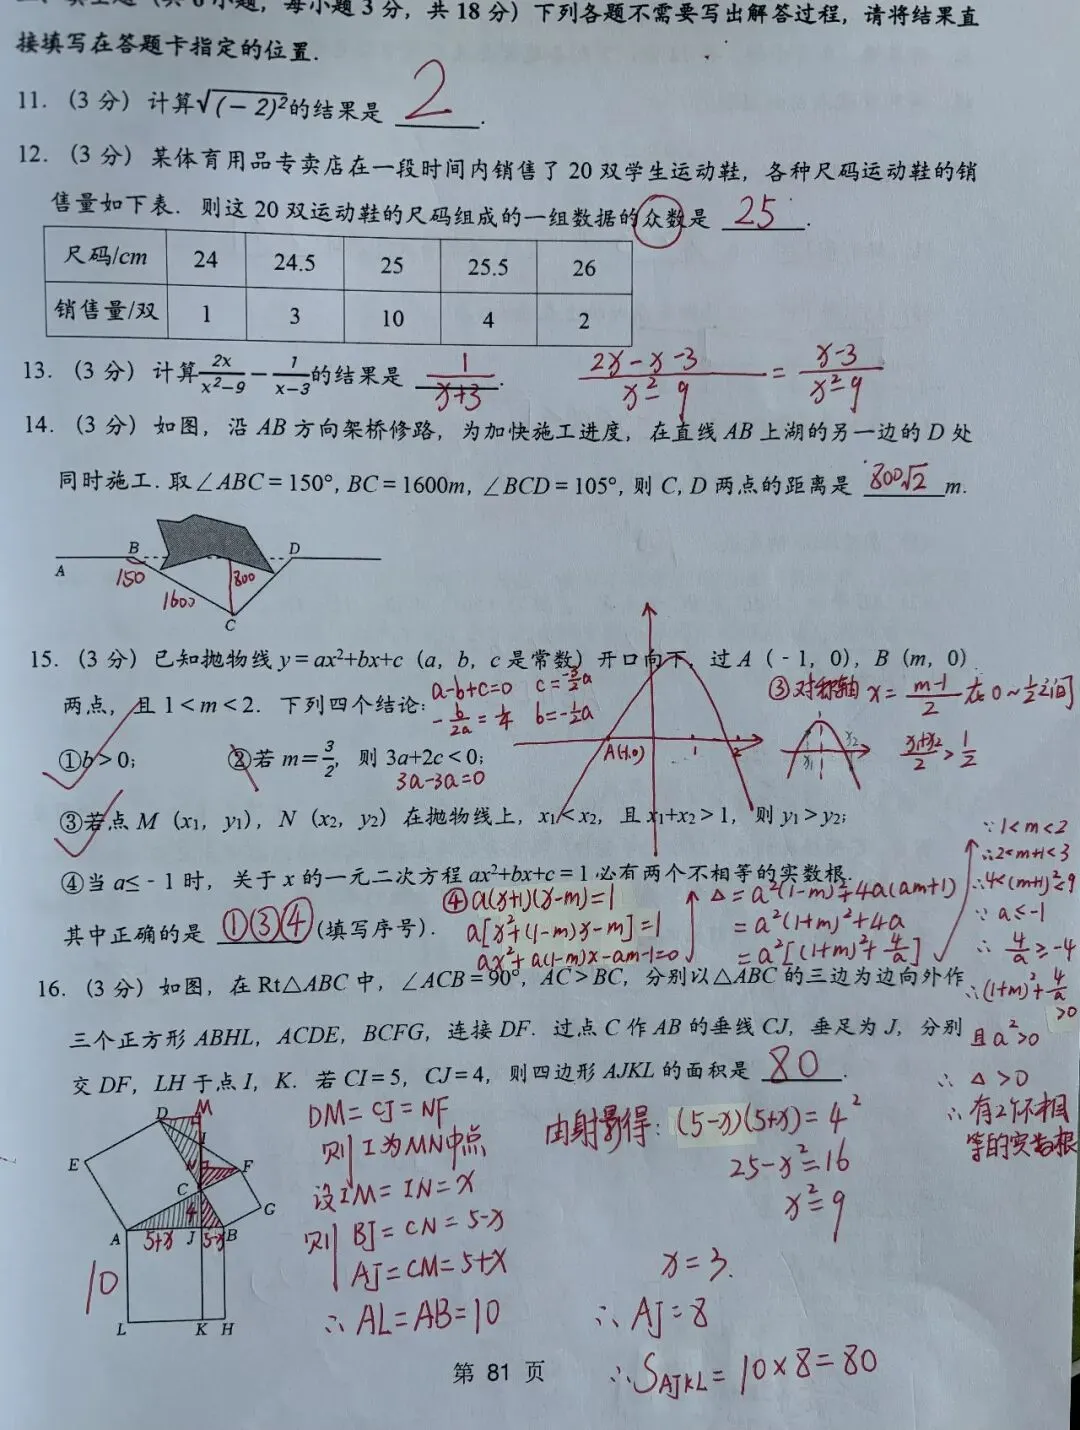 二、填空题（共6小题，每小题3分，共18分）下列各题不需要写出解答过程，请将结果直
接填写在答题卡指定的位置.
11.（3分）计算√(－2)²的结果是 2 .
12.（3分）某体育用品专卖店在一段时间内销售了20双学生运动鞋，各种尺码运动鞋的销
售量如下表. 则这20双运动鞋的尺码组成的一组数据的众数是 25 .
尺码/cm 24 24.5 25 25.5 26
销售量/双 1 3 10 4 2
13.（3分）计算2x/(x²－9)－1/(x－3)的结果是 1/(x+3) . (2x－x－3)/(x²－9) = (x－3)/(x²－9)
14.（3分）如图，沿AB方向架桥修路，为加快施工进度，在直线AB上湖的另一边的D处
同时施工. 取∠ABC＝150°, BC＝1600m, ∠BCD＝105°, 则C, D两点的距离是 800√2 m.
A B D
150 1600 800
C
15.（3分）已知抛物线y＝ax²+bx+c（a，b，c是常数）开口向下，过A（﹣1，0），B（m，0）
两点，且1＜m＜2. 下列四个结论：
a－b+c=0 c=－3/2a
－b/2a=1/4 b=－1/2a
③对称轴 x=(m－1)/2 在0~1/2之间
①b＞0；
②若m＝3/2，则3a+2c＜0；
3a－3a=0
A(-1,0) 1 2
x₁ x₂
(x₁+x₂)/2>1/2
③若点M（x₁，y₁），N（x₂，y₂）在抛物线上，x₁＜x₂，且x₁+x₂＞1，则y₁＞y₂；
④当a≤﹣1时，关于x的一元二次方程ax²+bx+c＝1必有两个不相等的实数根.
其中正确的是 ①③④ (填写序号).
④a(x+1)(x－m)=1
a[x²+(1－m)x－m]=1
ax²+a(1－m)x－am－1=0
△=a²(1－m)²+4a(am+1)
=a²(1+m)²+4a
=a²[(1+m)²+4/a]
∵1<m<2
∴2<m+1<3
∴4<(m+1)²<9
∵ a≤－1
∴ 4/a≥－4
∴(1+m)²+4/a>0
且a²>0
∴ △>0
∴有2个不相
等的实数根
16.（3分）如图，在Rt△ABC中，∠ACB＝90°，AC＞BC，分别以△ABC的三边为边向外作
三个正方形ABHL，ACDE，BCFG，连接DF. 过点C作AB的垂线CJ，垂足为J，分别
交DF，LH于点I，K. 若CI＝5，CJ＝4，则四边形AJKL的面积是 80 .
D M
I
E N F
C
4 G
A J B
5+x 5－x
10
L K H
DM=CJ=NF
则I为MN中点
设IM=IN=x
则 BJ=CN=5－x
AJ=CM=5+x
∴AL=AB=10
由射影得：(5－x)(5+x)=4²
25－x²=16
x²=9
x=3.
∴AJ=8
∴S AJKL=10×8=80
第 81 页